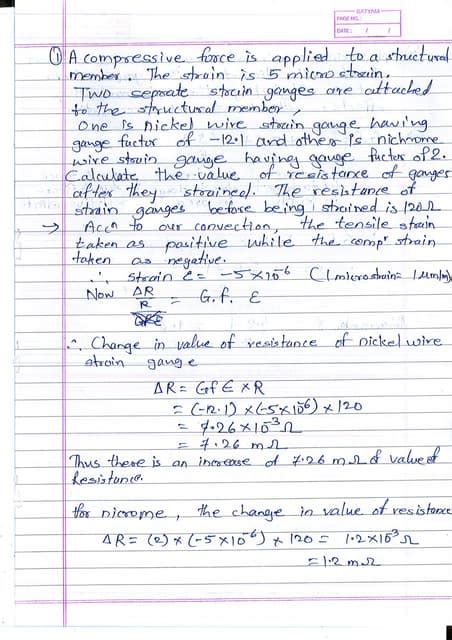 SATYAM
PAGE NO.:
DATE: / /
① A compressive force is applied to a structural
member. The strain is 5 micro strain.
Two seprate strain ganges are attached
to the structural member,
One is nickel wire strain gauge having
gange factor of -12.1 and other is nichrome
wire strain gauge having gauge factor of 2.
Calculate the value of resistance of ganges
after they strained. The resistance of
strain ganges before being strained is 120Ω
→ Accn to our convection, the tensile strain
taken as positive while the compr strain
taken as negative.
∴ strain ε = -5×10⁻⁶ (1 microstrain = 1 μm/m)
Now ΔR/R = G.f. ε
∴ Change in value of resistance of nickel wire
strain gauge
ΔR = Gf ε × R
= (-12.1) × (-5×10⁻⁶) × 120
= 7.26 × 10⁻³ Ω
= 7.26 mΩ
Thus there is an increase of 7.26 mΩ of value of
Resistance.
for nicrome, the change in value of resistance
ΔR = (2) × (-5×10⁻⁶) × 120 = 1.2×10³ Ω
= 1.2 mΩ